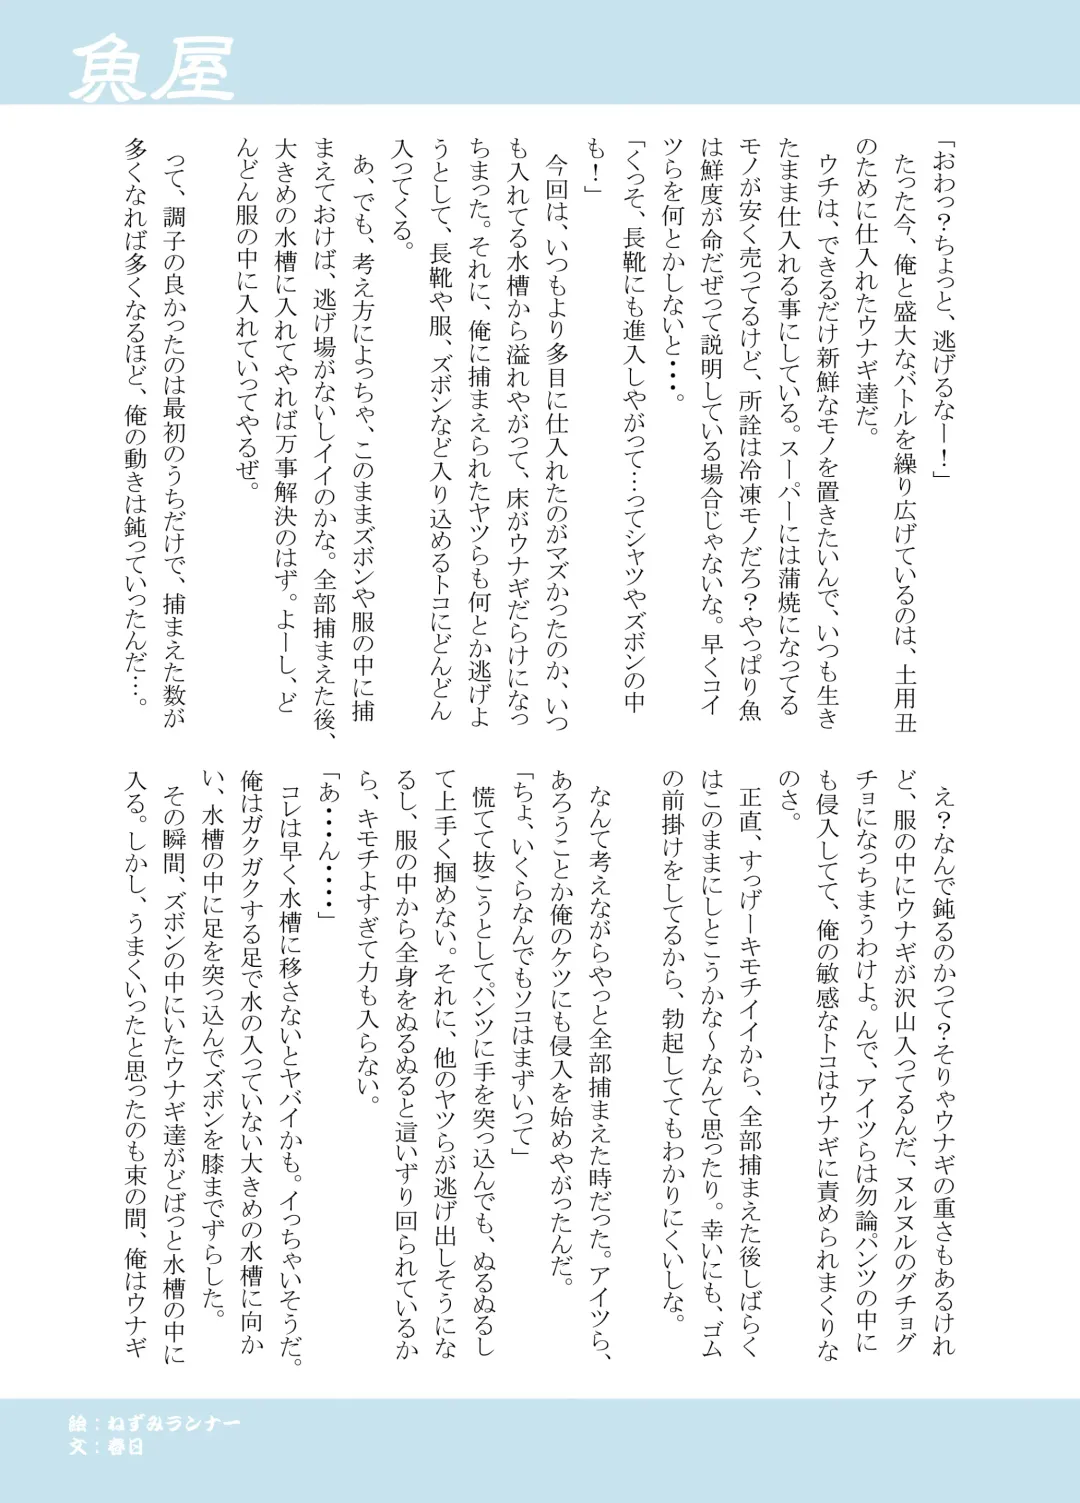 魚屋
「おわっ？ちょっと、逃げるなー！」
　たった今、俺と盛大なバトルを繰り広げているのは、土用丑
のために仕入れたウナギ達だ。
　ウチは、できるだけ新鮮なモノを置きたいんで、いつも生き
たまま仕入れる事にしている。スーパーには蒲焼になってる
モノが安く売ってるけど、所詮は冷凍モノだろ？やっぱり魚
は鮮度が命だぜって説明している場合じゃないな。早くコイ
ツらを何とかしないと・・・。
「くっそ、長靴にも進入しやがって…ってシャツやズボンの中
も！」
　今回は、いつもより多目に仕入れたのがマズかったのか、いつ
も入れてる水槽から溢れやがって、床がウナギだらけになっ
ちまった。それに、俺に捕まえられたヤツらも何とか逃げよ
うとして、長靴や服、ズボンなど入り込めるトコにどんどん
入ってくる。
　あ、でも、考え方によっちゃ、このままズボンや服の中に捕
まえておけば、逃げ場がないしイイのかな。全部捕まえた後、
大きめの水槽に入れてやれば万事解決のはず。よーし、ど
んどん服の中に入れていってやるぜ。
　って、調子の良かったのは最初のうちだけで、捕まえた数が
多くなれば多くなるほど、俺の動きは鈍っていったんだ…。
　え？なんで鈍るのかって？そりゃウナギの重さもあるけれ
ど、服の中にウナギが沢山入ってるんだ、ヌルヌルのグチョグ
チョになっちまうわけよ。んで、アイツらは勿論パンツの中に
も侵入してて、俺の敏感なトコはウナギに責められまくりな
のさ。
　正直、すっげーキモチイイから、全部捕まえた後しばらく
はこのままにしとこうかな～なんて思ったり。幸いにも、ゴム
の前掛けをしてるから、勃起しててもわかりにくいしな。
　なんて考えながらやっと全部捕まえた時だった。アイツら、
あろうことか俺のケツにも侵入を始めやがったんだ。
「ちょ、いくらなんでもソコはまずいって」
　慌てて抜こうとしてパンツに手を突っ込んでも、ぬるぬるし
て上手く掴めない。それに、他のヤツらが逃げ出しそうにな
るし、服の中から全身をぬるぬると這いずり回られているか
ら、キモチよすぎて力も入らない。
「あ・・・ん・・・・」
　コレは早く水槽に移さないとヤバイかも。イっちゃいそうだ。
俺はガクガクする足で水の入っていない大きめの水槽に向か
い、水槽の中に足を突っ込んでズボンを膝までずらした。
　その瞬間、ズボンの中にいたウナギ達がどばっと水槽の中に
入る。しかし、うまくいったと思ったのも束の間、俺はウナギ
絵：ねずみランナー
文：春日